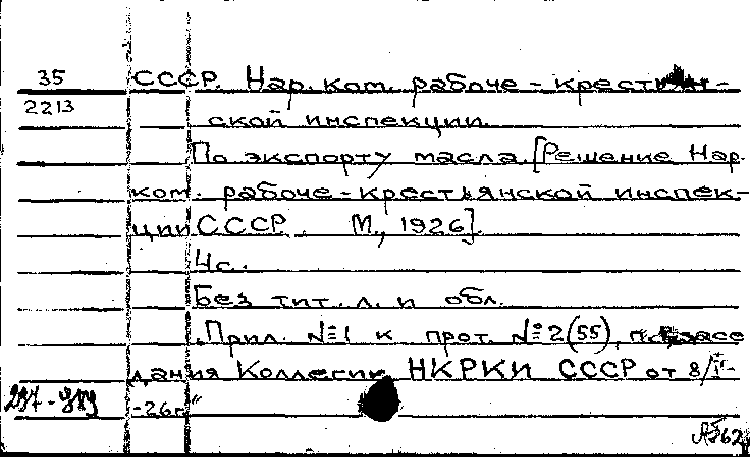 35 СССР. Нар. ком. рабоче-крестьян-
2213
ской инспекции.
По экспорту масла. [Решение Нар.
ком. рабоче-крестьянской инспек-
ции СССР. М., 1926].
4с.
Без тит. л. и обл.
„Прил. №1 к прот. №2(55), засе
дания Коллегии НКРКИ СССР от 8/I-
-26г"